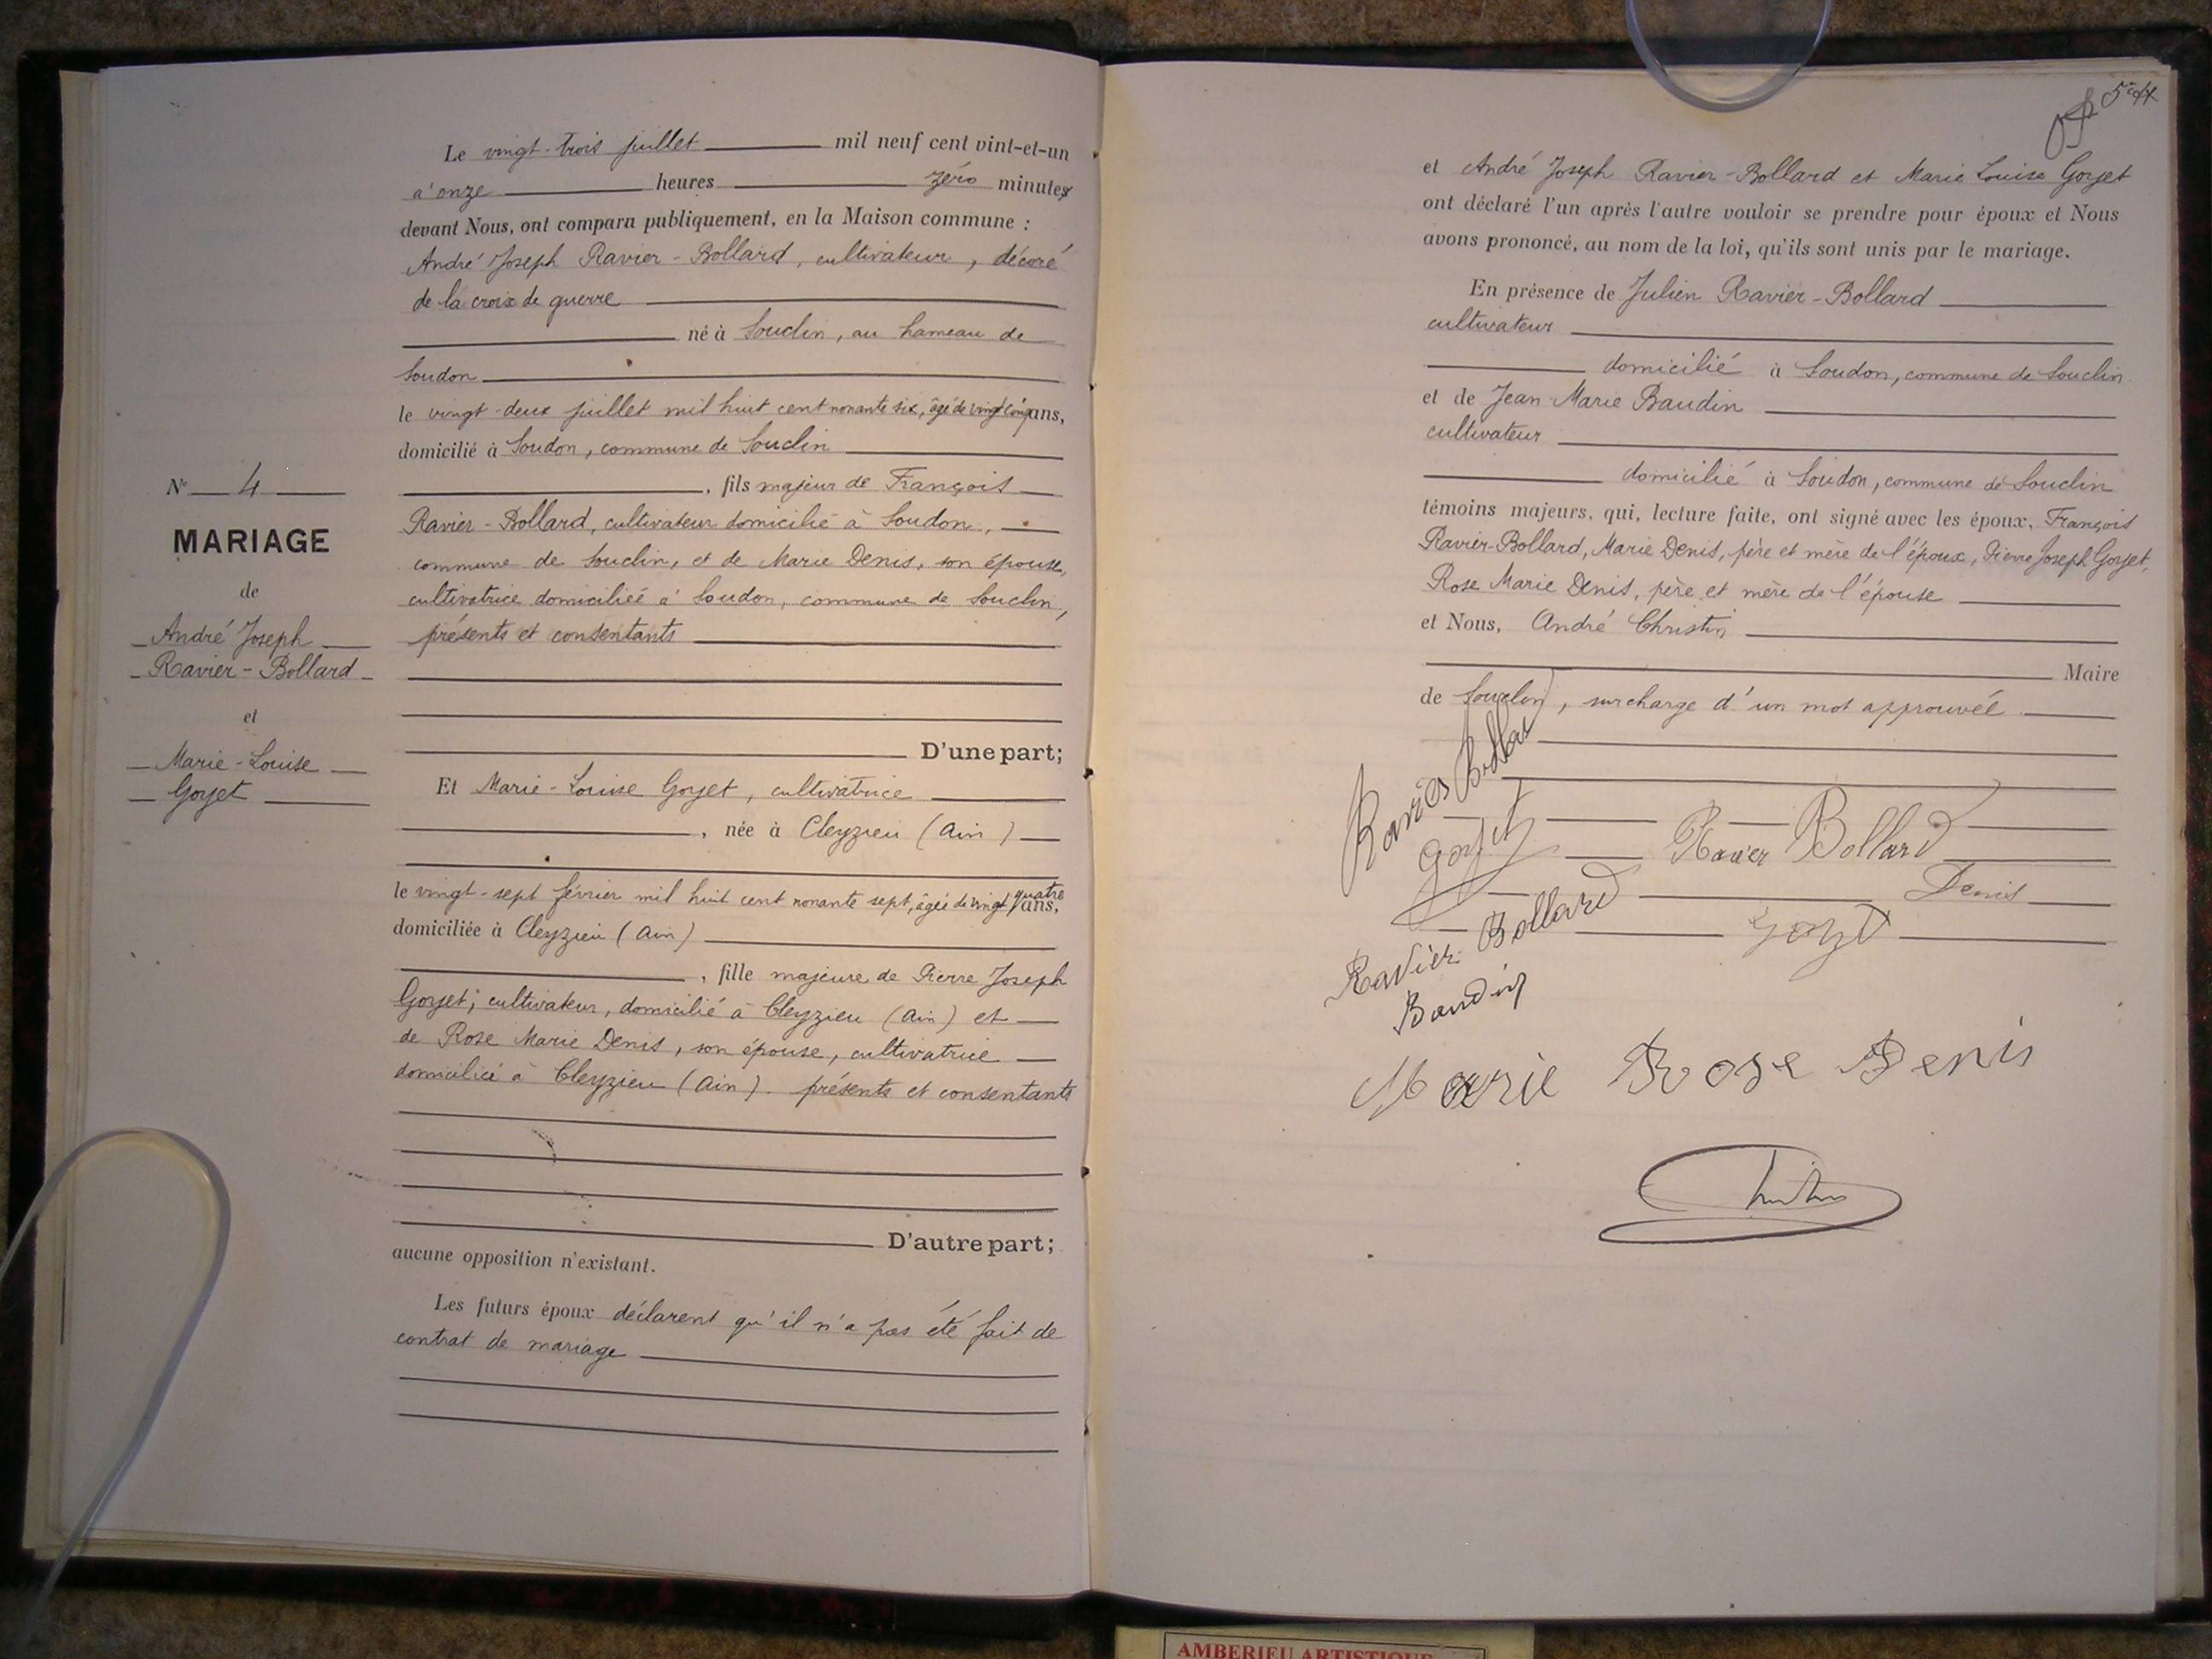 Le vingt-trois juillet mil neuf cent vint-et-un
à onze heures zéro minutes
devant Nous, ont comparu publiquement, en la Maison commune :
André Joseph Ravier-Bollard, cultivateur, décoré
de la croix de guerre
né à Souclin, au hameau de
Soudon
le vingt-deux juillet mil huit cent nonante six, âgé de vingt cinq ans,
domicilié à Soudon, commune de Souclin
, fils majeur de François
Ravier-Bollard, cultivateur domicilié à Soudon,
commune de Souclin, et de Marie Denis, son épouse,
cultivatrice domiciliée à Soudon, commune de Souclin,
présents et consentants
D'une part;
Et Marie-Louise Goyet, cultivatrice
, née à Cleyzieu (Ain)
le vingt-sept février mil huit cent nonante sept, âgée de vingt quatre ans,
domiciliée à Cleyzieu (Ain)
, fille majeure de Pierre Joseph
Goyet, cultivateur, domicilié à Cleyzieu (Ain) et
de Rose Marie Denis, son épouse, cultivatrice
domiciliée à Cleyzieu (Ain). présents et consentants
D'autre part;
aucune opposition n'existant.
Les futurs époux déclarent qu'il n'a pas été fait de
contrat de mariage
N° 4
MARIAGE
de
André Joseph
Ravier-Bollard
et
Marie-Louise
Goyet
et André Joseph Ravier-Bollard et Marie Louise Goyet
ont déclaré l'un après l'autre vouloir se prendre pour époux et Nous
avons prononcé, au nom de la loi, qu'ils sont unis par le mariage.
En présence de Julien Ravier-Bollard
cultivateur
domicilié à Soudon, commune de Souclin
et de Jean Marie Baudin
cultivateur
domicilié à Soudon, commune de Souclin
témoins majeurs, qui, lecture faite, ont signé avec les époux, François
Ravier-Bollard, Marie Denis, père et mère de l'époux, Pierre Joseph Goyet,
Rose Marie Denis, père et mère de l'épouse
et Nous, André Christin
Maire
de Souclin, surcharge d'un mot approuvée
Ravier Bollard
Goyet
Ravier Bollard
Denis
Ravier Bollard
Goyet
Baudin
Marie Rose Denis
Christin
AMBERIEU ARTISTIQUE